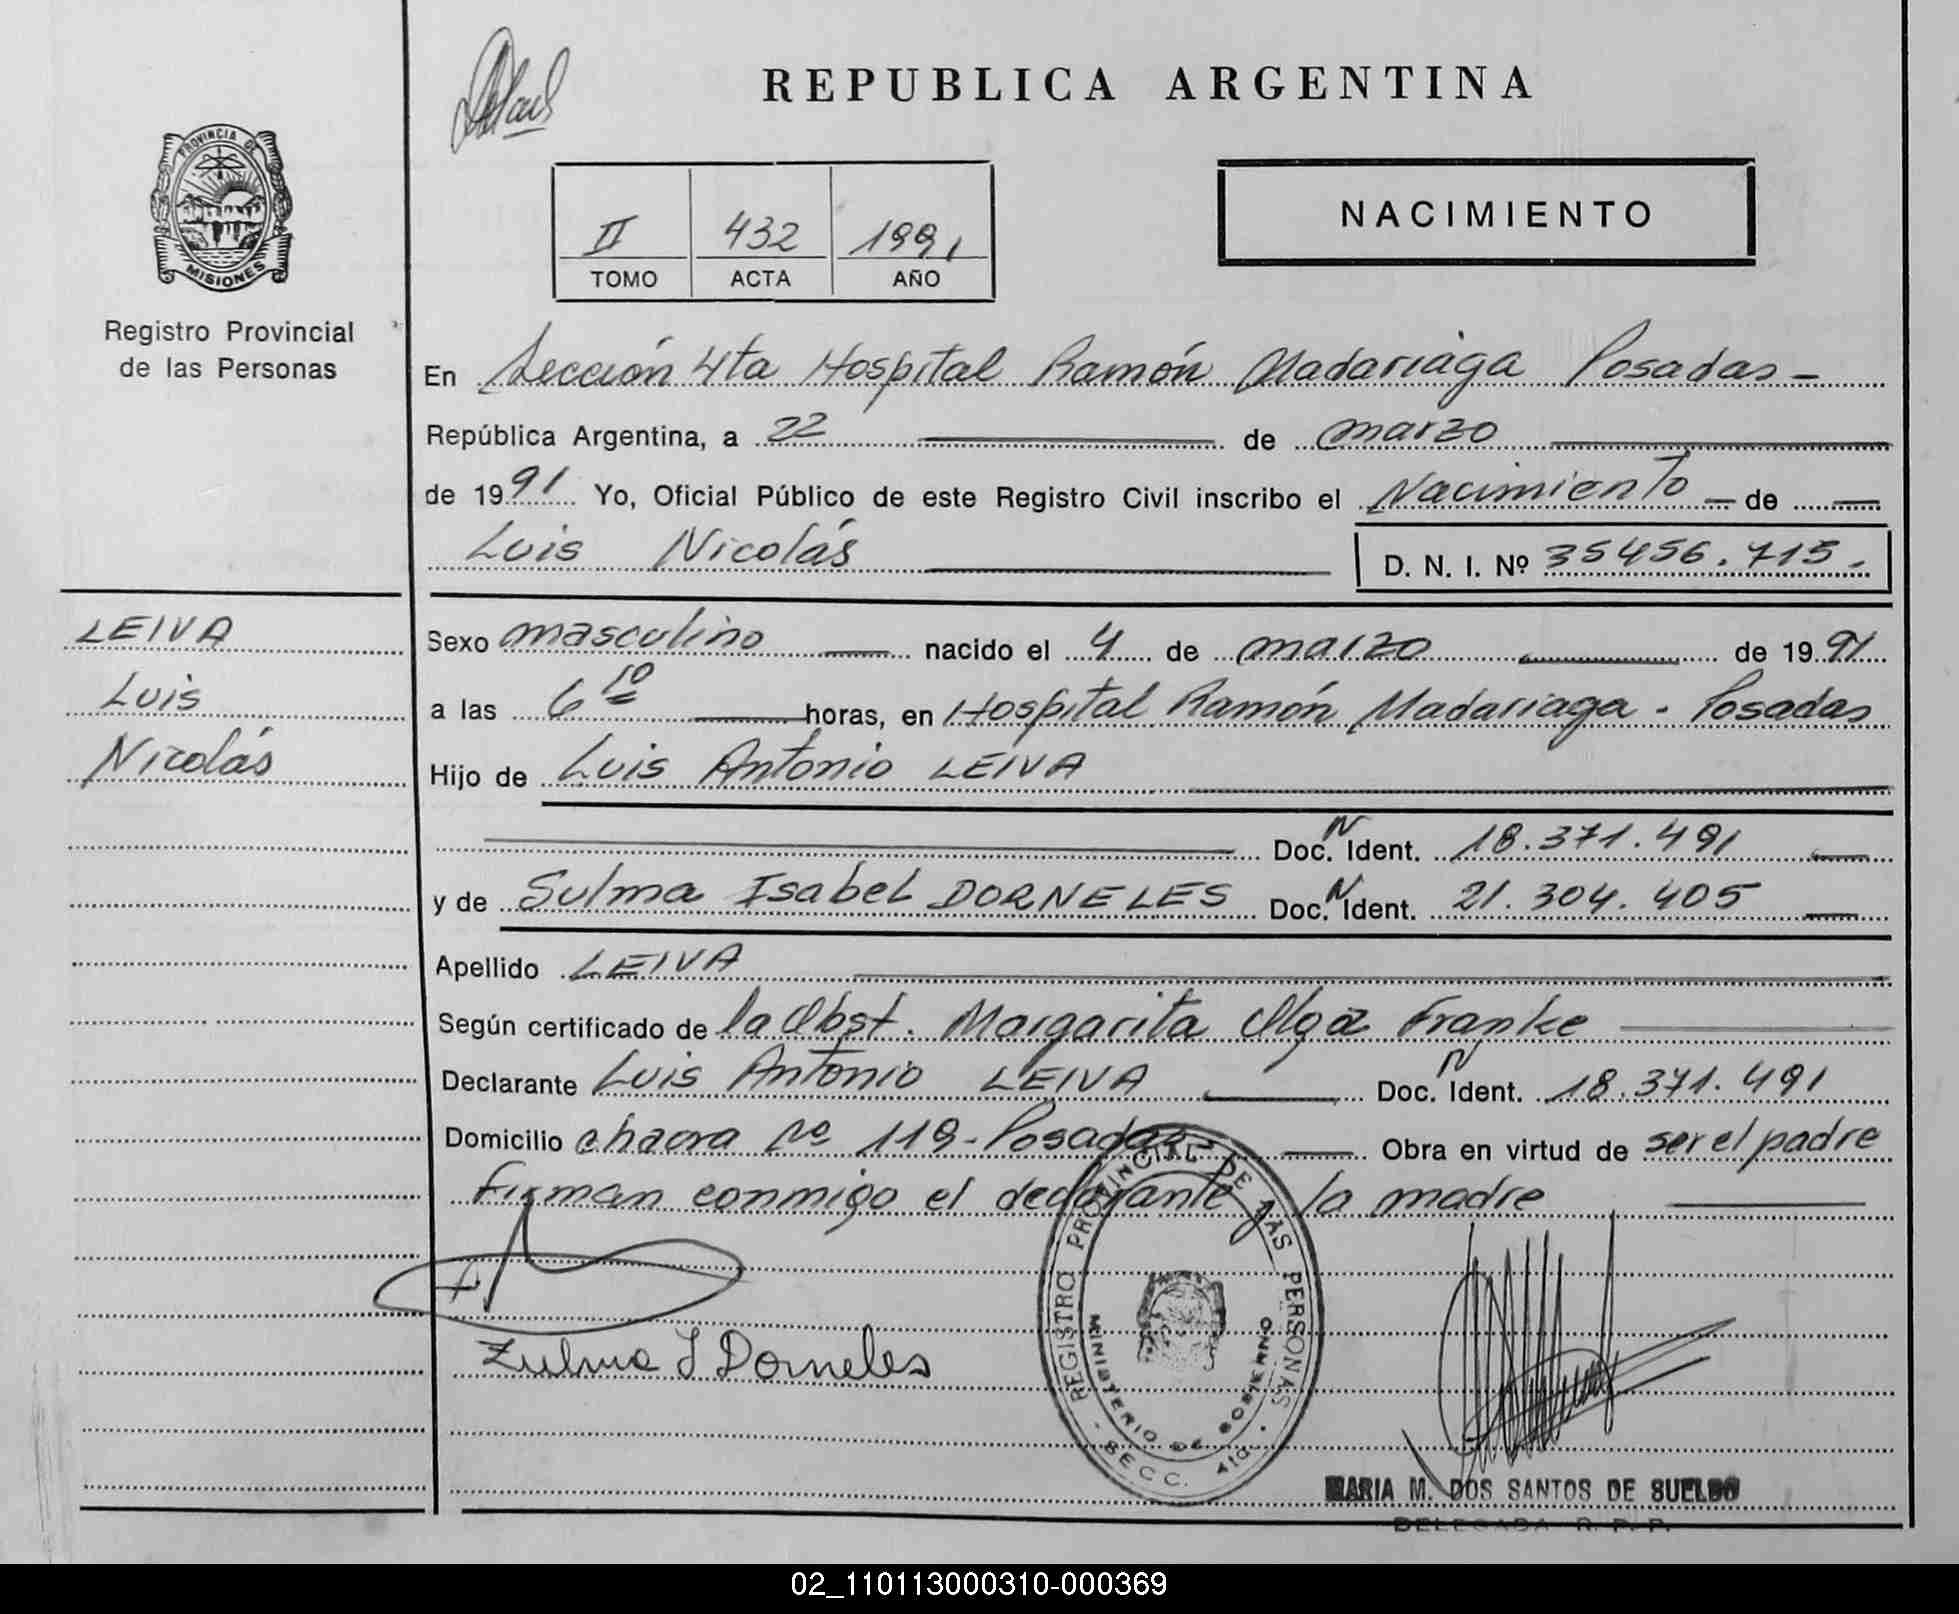 REPUBLICA ARGENTINA
PROVINCIA DE
MISIONES
Registro Provincial
de las Personas
II 432 1991
TOMO ACTA AÑO
NACIMIENTO
En Sección 4ta Hospital Ramón Madariaga Posadas -
República Argentina, a 22 de marzo
de 1991 Yo, Oficial Público de este Registro Civil inscribo el Nacimiento - de
Luis Nicolás D. N. I. Nº 35456.715.
LEIVA
Luis
Nicolás
Sexo masculino nacido el 4 de marzo de 1991
a las 6 10 horas, en Hospital Ramón Madariaga - Posadas
Hijo de Luis Antonio LEIVA
Doc. N Ident. 18.371.491
y de Sulma Isabel DORNELES Doc. N Ident. 21.304.405
Apellido LEIVA
Según certificado de la Obst. Margarita Olga Franke
Declarante Luis Antonio LEIVA Doc. N Ident. 18.371.491
Domicilio chacra nº 119 - Posadas - Obra en virtud de ser el padre
Firman conmigo el declarante y la madre
Zulma I Dorneles
REGISTRO PROVINCIAL DE LAS PERSONAS
MINISTERIO DE GOBIERNO
- SECC. 4ta. -
MARIA M. DOS SANTOS DE SUELDO
DELEGADA R. P. P.
02_110113000310-000369